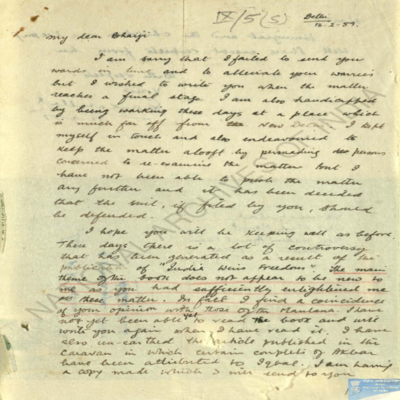 IX/5(S)
Delhi
12-2-59.
My dear Bhaiji
I am sorry that I failed to send you
words in time and to alleviate your worries
but I wished to write you when the matter
reaches a final stage. I am also handicapped
by being working these days at a place which
is much far off from the New Delhi. I kept
myself in touch and also endeavoured to
keep the matter aloft by persuading persons
concerned to re-examine the matter but I
have not been able to push the matter
any further and it has been decided
that the suit, if filed by you, should
be defended.
I hope you will be keeping well as before
These days there is a lot of controversy
that has been generated as a result of the
publication of "India Wins Freedom". The main
theme of the book does not appear to be new to
me as you had sufficiently enlightened me
on these matter. In fact I find a coincidence
of your opinion with those of the Maulana. I have
not yet been able to read the book and will
write you again when I have read it. I have
also un-earthed the article published in the
Caravan in which certain couplets of Akbar
have been attributed to Iqbal. I am having
a copy made which I will send to you